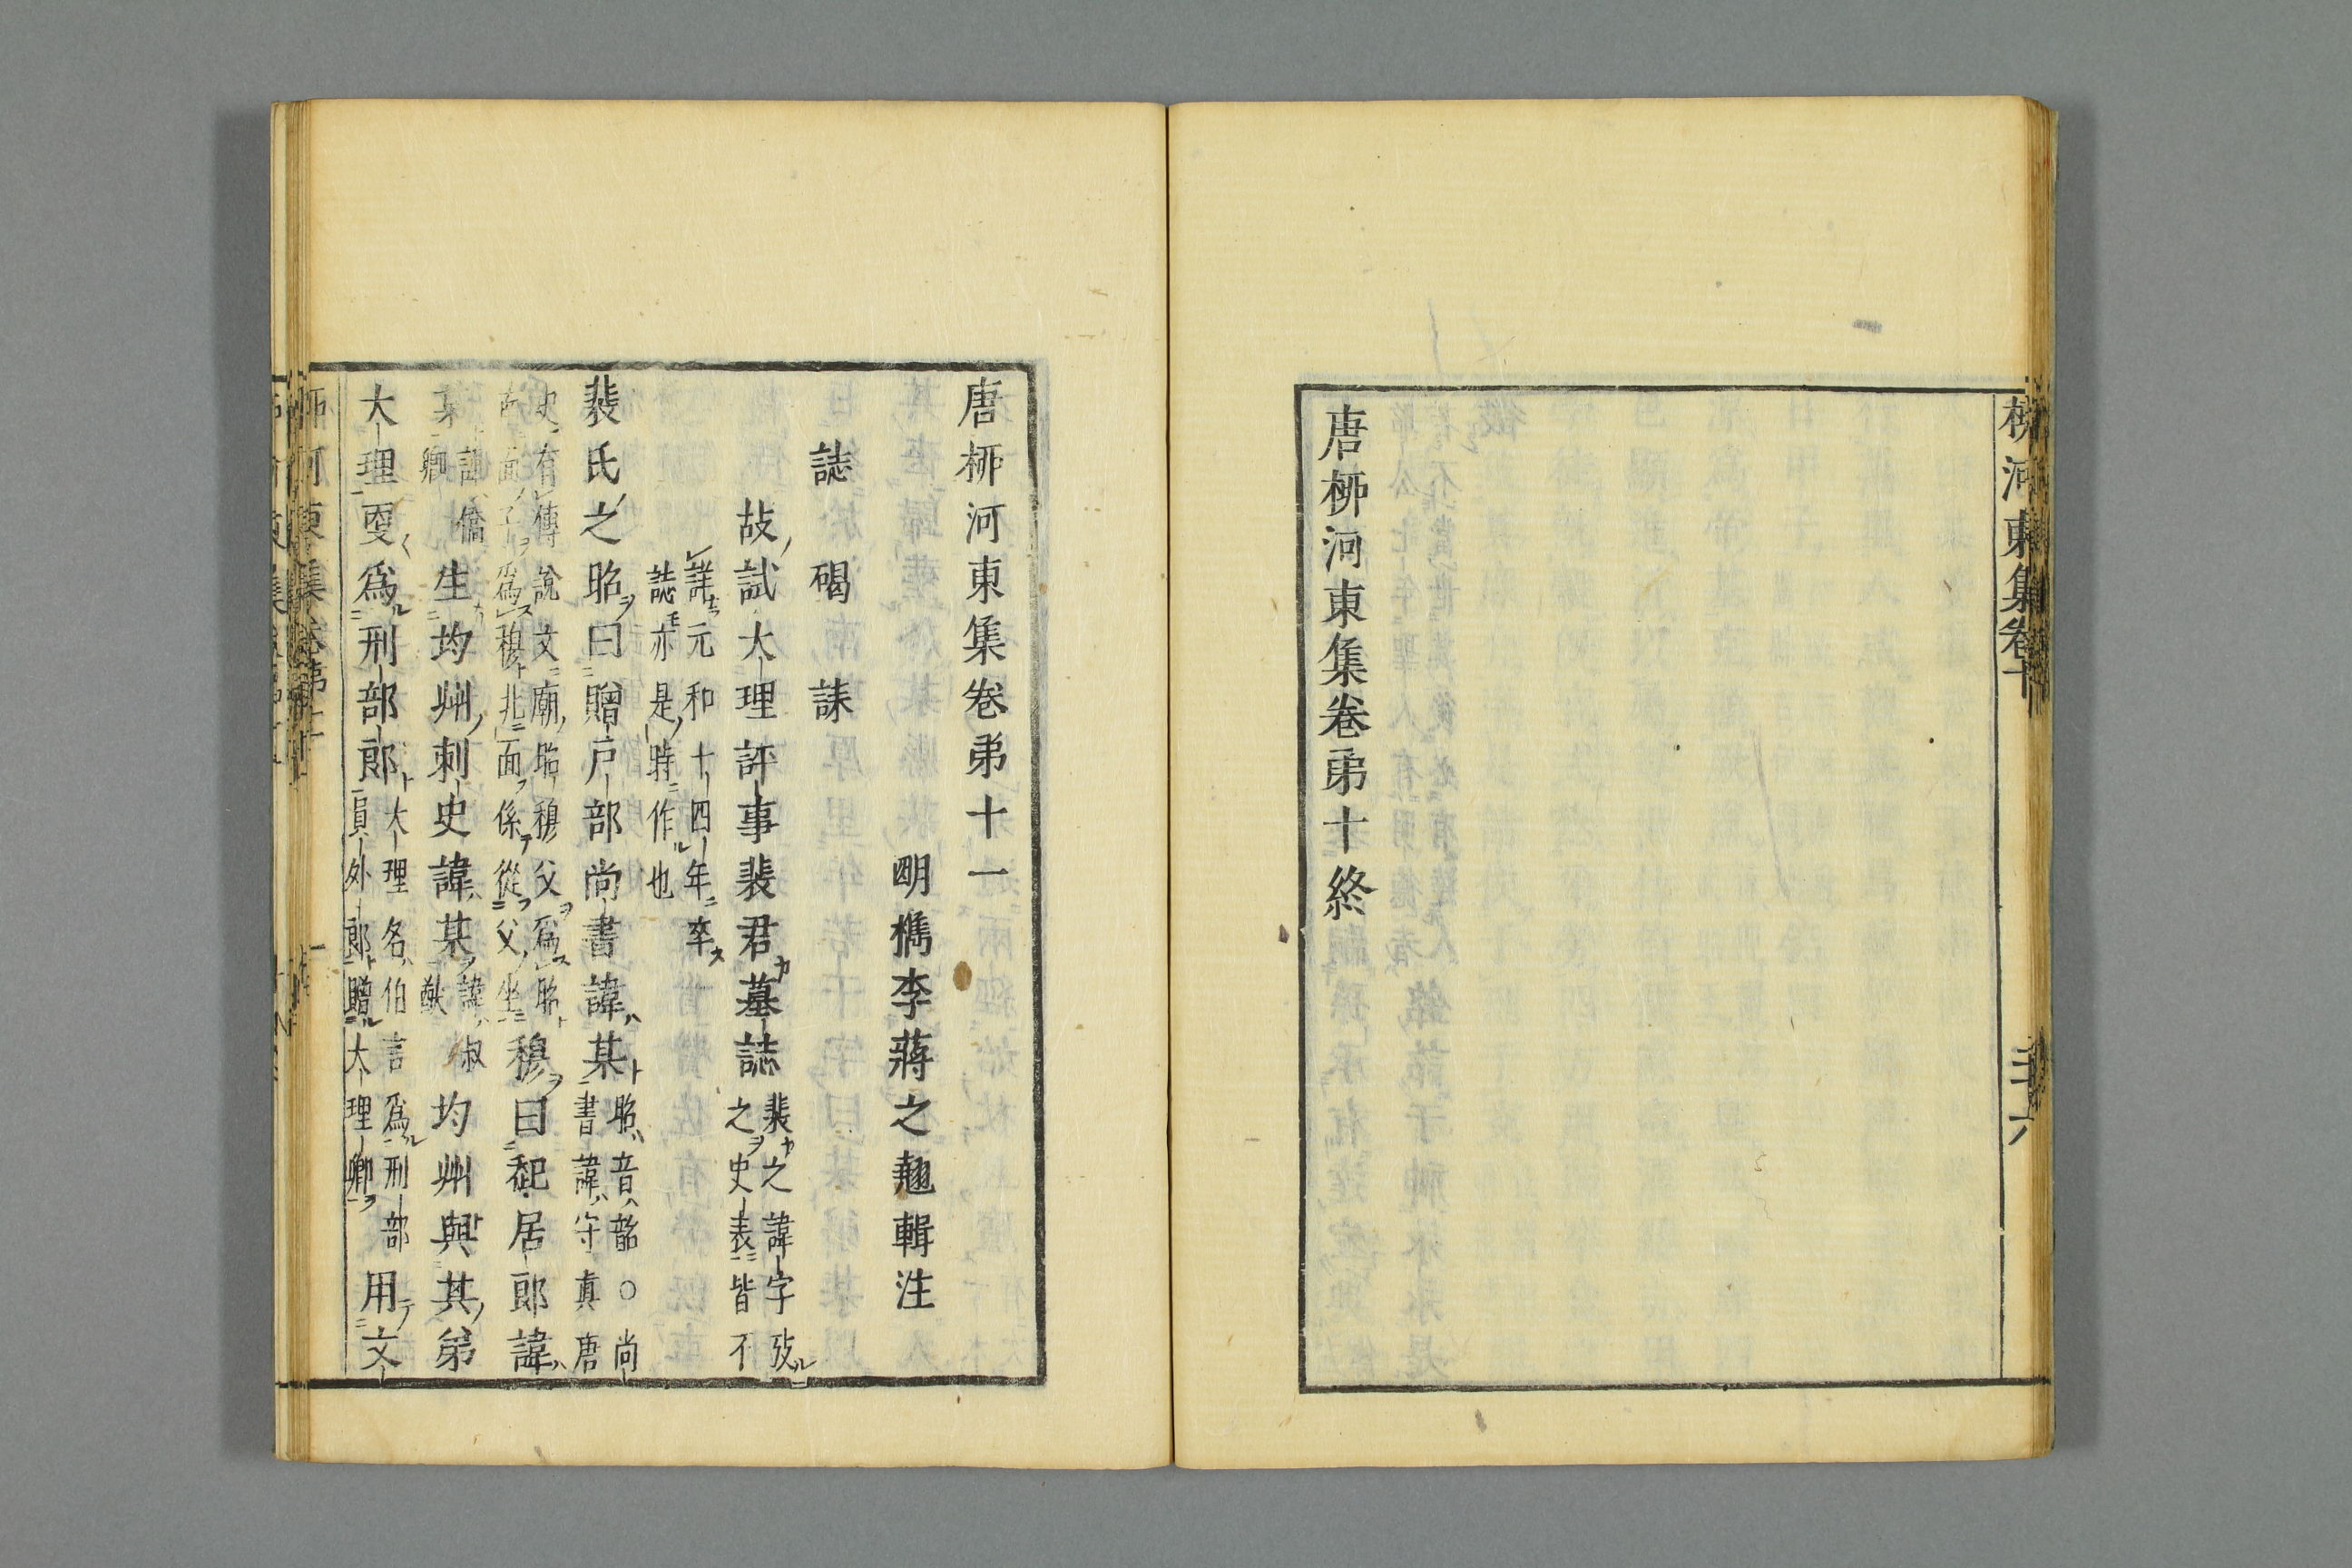 柳河東集卷十
三十六
唐柳河東集卷第十終
唐柳河東集卷第十一
明檇李蔣之翹輯注
誌　碣　誄
故試大理評事裴君墓誌
裴之諱字攷
之史表皆不
詳元和十四年卒
誌亦是時作也
裴氏之昭曰贈戶部尚書諱某
昭音韶○尚
書諱守真唐
史有傳說文廟昭穆父爲昭
南面子爲穆北面係從父坐
穆曰起居郎諱
某
諱僑
卿
生均州刺史諱某
諱叔
猷
均州與其弟
大理更爲刑部郎
大理名伯言爲刑部
員外郎贈大理卿
用文